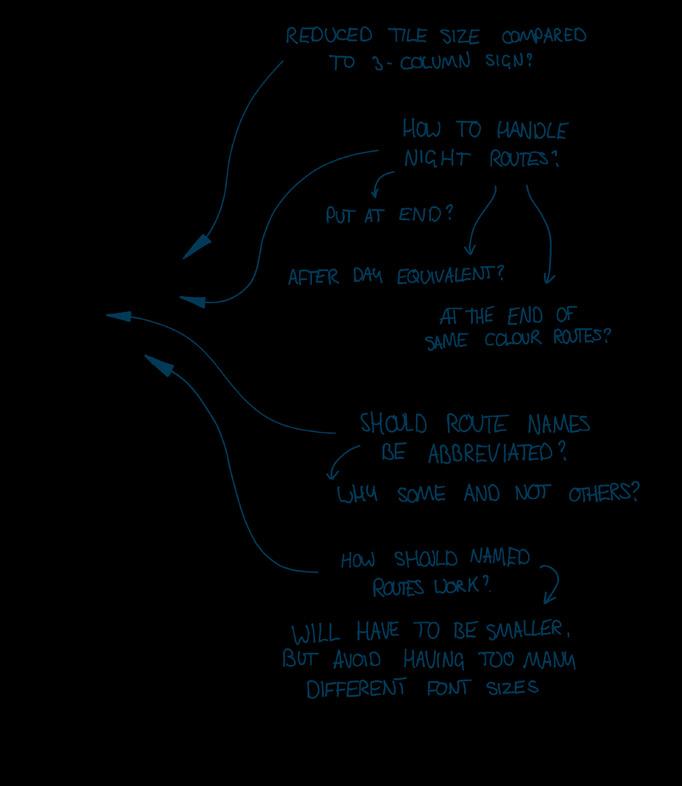 REDUCED TILE SIZE COMPARED
TO 3-COLUMN SIGN?
HOW TO HANDLE
NIGHT ROUTES?
PUT AT END?
AFTER DAY EQUIVALENT?
AT THE END OF
SAME COLOUR ROUTES?
SHOULD ROUTE NAMES
BE ABBREVIATED?
WHY SOME AND NOT OTHERS?
HOW SHOULD NAMED
ROUTES WORK?
WILL HAVE TO BE SMALLER,
BUT AVOID HAVING TOO MANY
DIFFERENT FONT SIZES